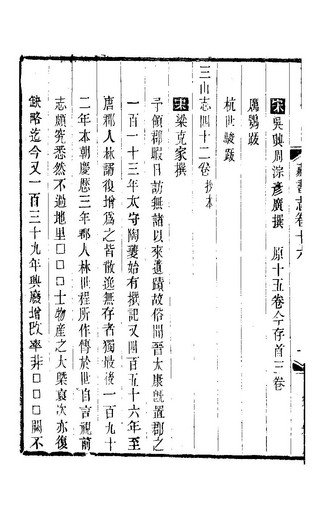 宋吳興周淙彥廣撰 原十五卷今存首三卷
厲鶚跋
杭世駿跋
三山志四十二卷 抄本
宋梁克家撰
予領郡暇日訪無諸以來遺蹟故俗聞吾太康旣置郡之
一百一十三年太守陶夔始有撰記又四百五十六年至
唐郡人林諝復增爲之皆散逸無存者獨最後一百九十
二年本朝慶歷三年郡人林世程所作傳於世自言視前
志頗究悉然不過地里□□□士物產之大槩裒次亦復
缺略迄今又一百三十九年興廢增改率非□□□闕不
藏書志卷十六